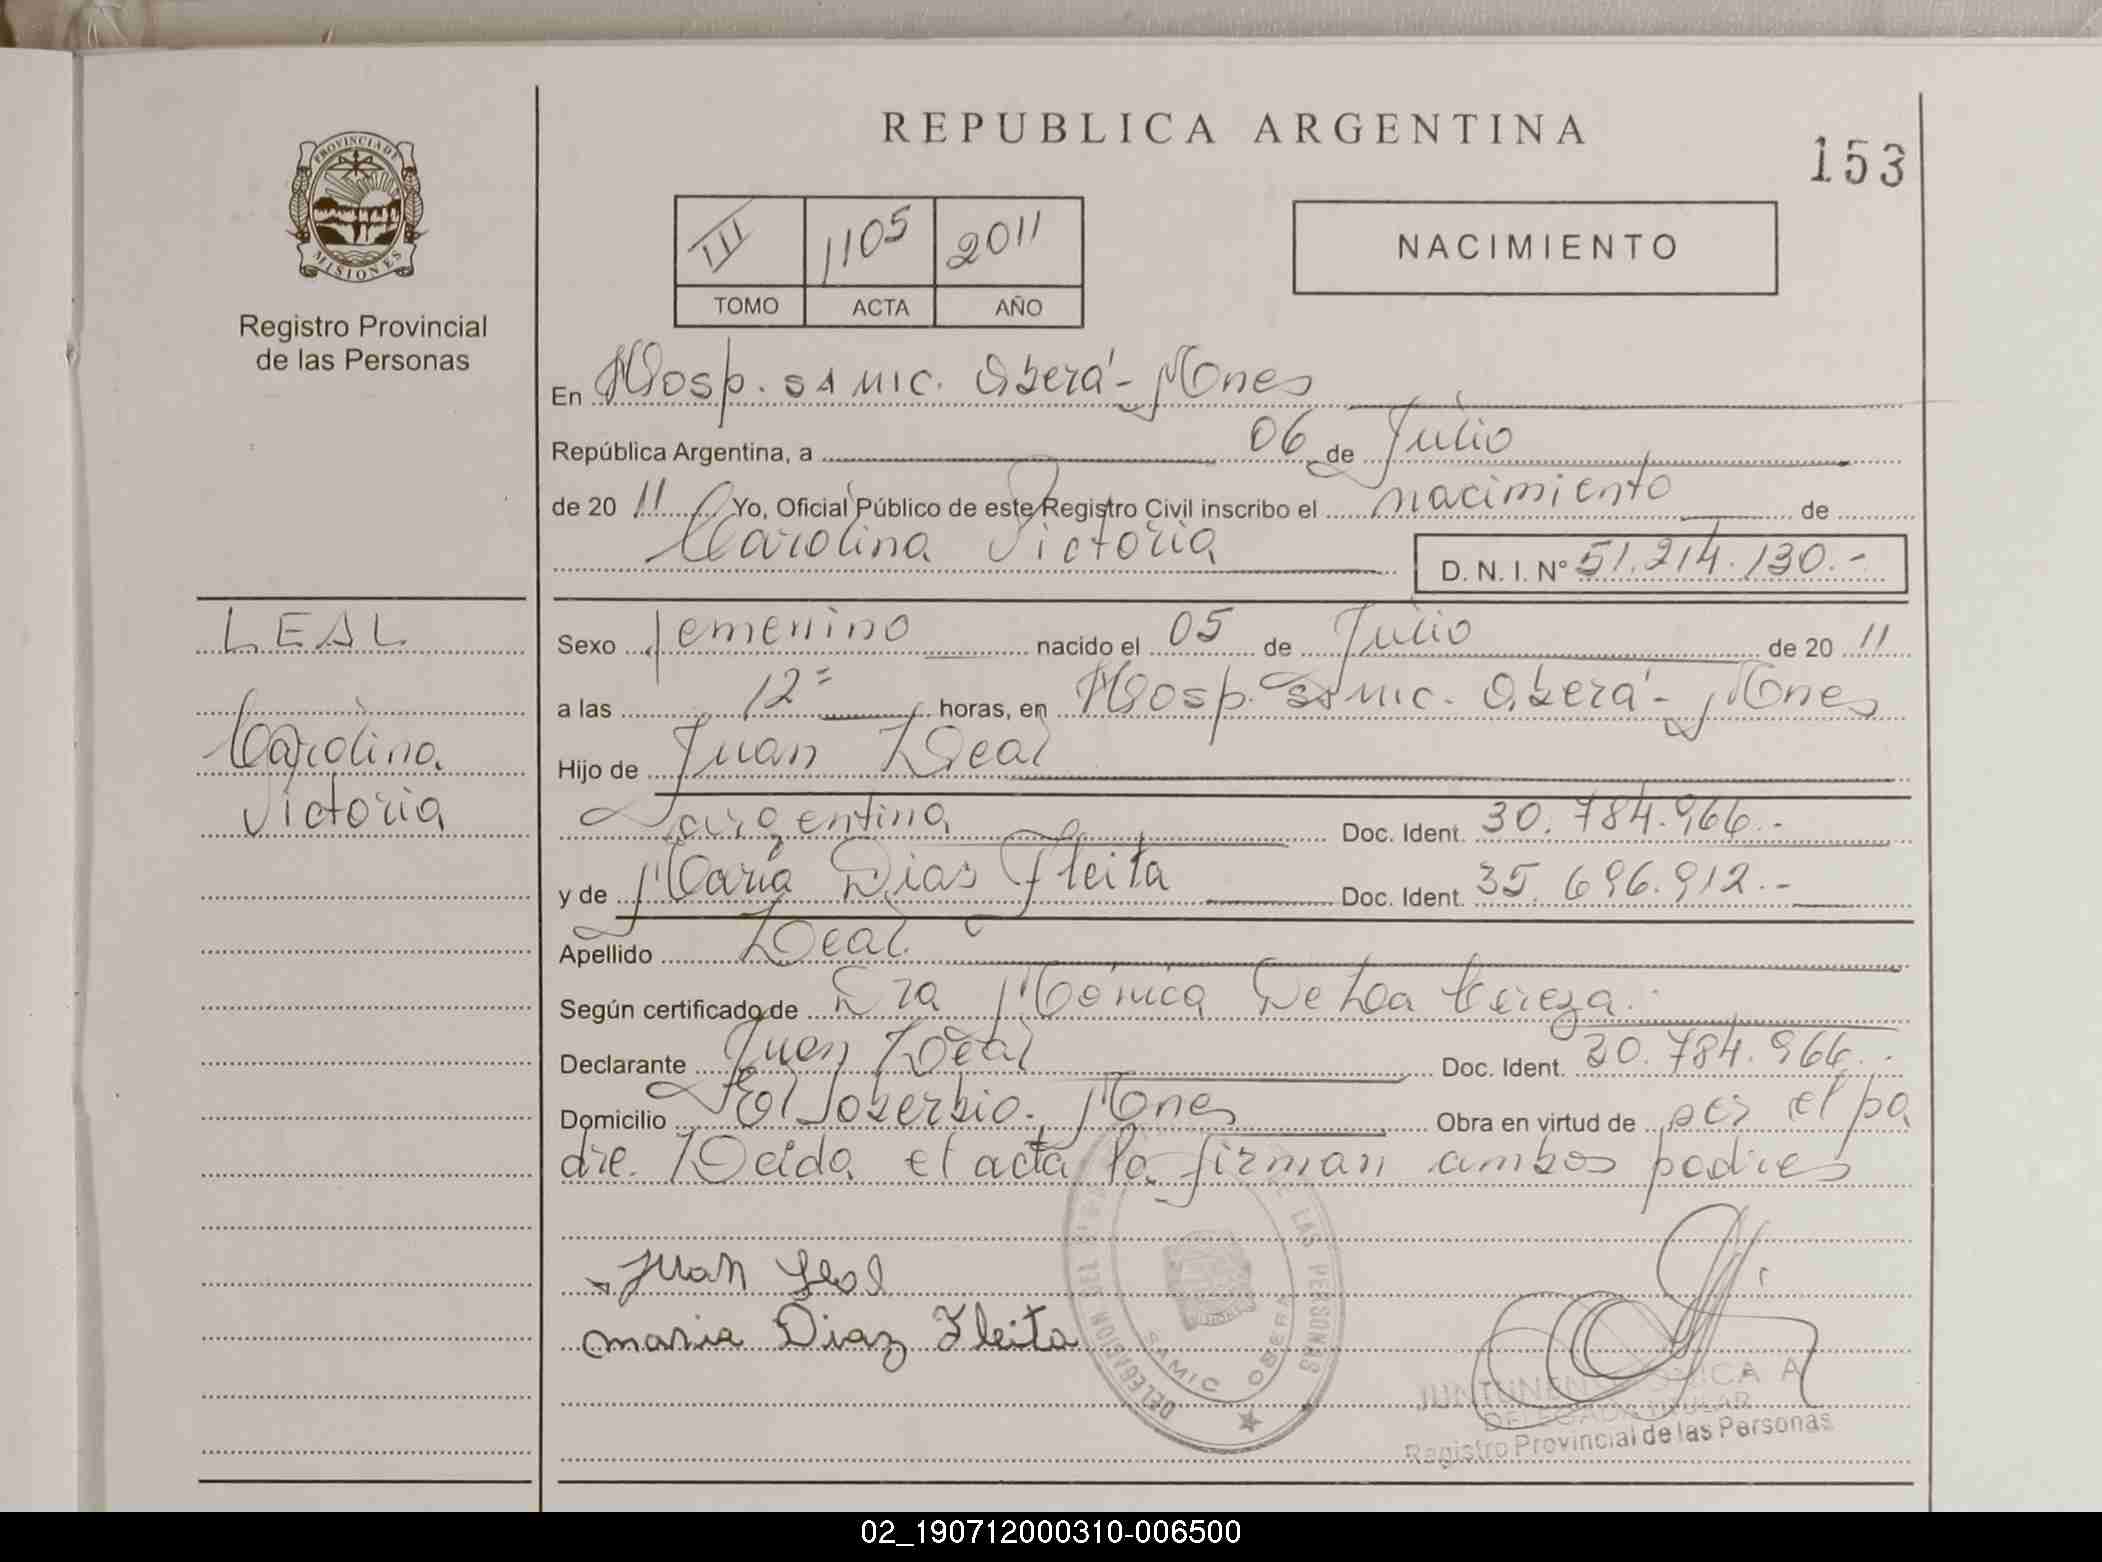 REPUBLICA ARGENTINA
153
PROVINCIA DE
MISIONES
Registro Provincial
de las Personas
III 1105 2011
TOMO ACTA AÑO
NACIMIENTO
En Hosp. SAMIC. Oberá - Mnes
República Argentina, a 06 de Julio
de 20 11 Yo, Oficial Público de este Registro Civil inscribo el nacimiento de
Carolina Victoria D. N. I. N° 51.214.130.-
LEAL
Carolina
Victoria
Sexo femenino nacido el 05 de Julio de 20 11
a las 12 horas, en Hosp. SAMIC. Oberá - Mnes
Hijo de Juan Leal
argentina Doc. Ident. 30.784.966.-
y de María Dias Fleita Doc. Ident. 35.696.912.-
Apellido Leal.
Según certificado de Dra Mónica De La Cereza.
Declarante Juan Leal Doc. Ident. 30.784.966.-
Domicilio El Soberbio. Mnes Obra en virtud de ser el pa
dre. Leida el acta la firman ambos padres
Juan Leal
maria Diaz Fleita
DELEGACION DEL DE LAS PERSONAS
SAMIC OBERA
DELEGADA TITULAR
Registro Provincial de las Personas
02_190712000310-006500